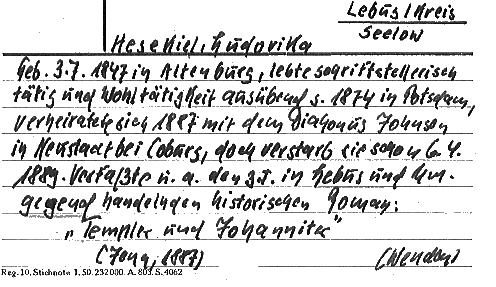 Lebus/Kreis
Seelow
Hesekiel, Ludovika
Geb. 3.7. 1847 in Altenburg, lebte schriftstellerisch
tätig und Wohltätigkeit ausübend s. 1874 in Potsdam,
verheiratete sich 1887 mit dem Diakonus Johnsen
in Neustadt bei Coburg, doch verstarb sie schon 6. 4.
1889. Verfaßte u. a. den z.T. in Lebus und Um-
gegend handelnden historischen Roman:
"Templer und Johanniter"
(Jena, 1887)
Reg. 10, Stichnote 1, 50. 232000. A. 803. S. 4062